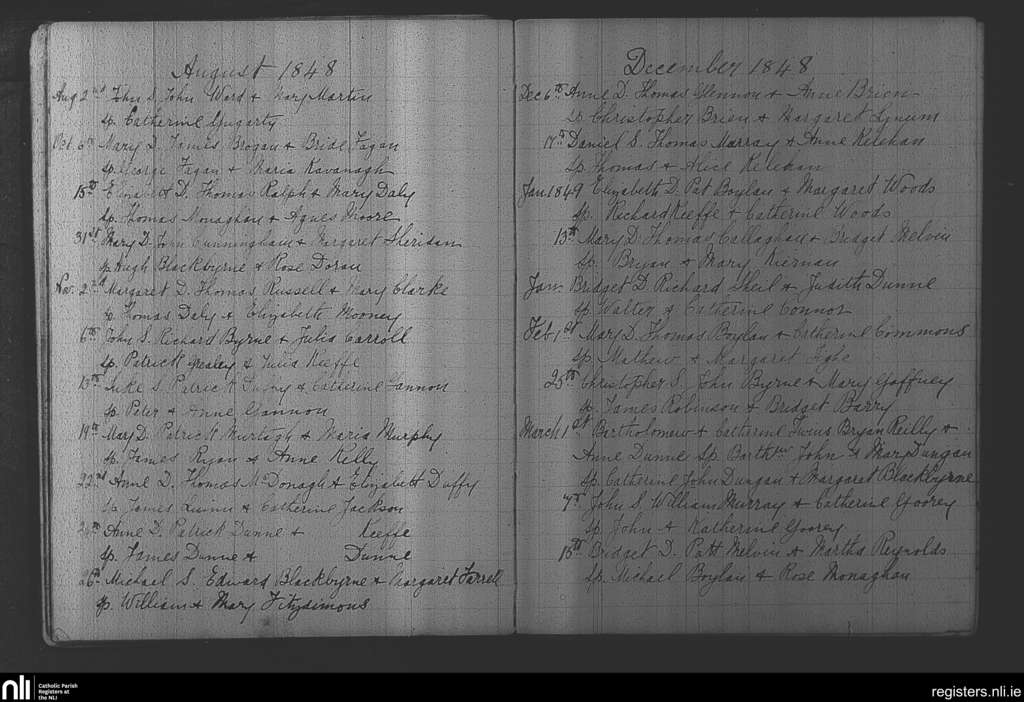 August 1848
Aug 2nd John S. John Ward & Mary Martin
sp. Catherine Gugarty
Oct. 6th Mary D. James Brogan & Bride Fagan
sp. George Fagan & Maria Kavanagh
15th Elizabeth D. Thomas Ralph & Mary Daly
sp. Thomas Monaghan & Agnes Moore
31st Mary D. John Cunningham & Margaret Sheridan
sp. Hugh Blackbyrne & Rose Doran
Nov. 2nd Margaret D. Thomas Russell & Mary Clarke
sp. Thomas Daly & Elizabeth Mooney
6th John S. Richard Byrne & Julia Carroll
sp. Patrick Grealey & Julia Keeffe
13th Luke S. Patrick & Catherine Gannon
sp. Peter & Anne Gannon
19th Mary D. Patrick Murtagh & Maria Murphy
sp. James Ryan & Anne Kelly
22nd Anne D. Thomas McDonagh & Elizabeth Duffy
sp. James Quinn & Catherine Jackson
Anne D. Patrick Dunne & Keeffe
sp. James Dunne & Dunne
26th Michael S. Edward Blackbyrne & Margaret Farrell
sp. William & Mary Fitzsimons
December 1848
Dec 6th Anne D. Thomas Glennon & Anne Brien
sp Christopher Brien & Margaret Lynum
17th Daniel S. Thomas Murray & Anne Kelehan
sp. Thomas & Alice Kelehan
Jan 1849 Elizabeth D. Pat Boylan & Margaret Woods
sp. Richard Keeffe & Catherine Woods
13th Mary D. Thomas Callaghan & Bridget Melvin
sp. Bryan & Mary Kiernan
Jan. Bridget D. Richard Sheil & Judith Dunne
sp. Walter & Catherine Connor
Feb 1st Mary D. Thomas Boylan & Catherine Commons
sp. Mathew & Margaret Tighe
25th Christopher S. John Byrne & Mary Gaffney
sp. James Robinson & Bridget Barry
March 1st Bartholomew & Catherine Twins Bryan Reilly &
Anne Dunne Sp. Barthw John & Mary Dungan
sp. Catherine John Dungan & Margaret Blackbyrne
7th John S. William Murray & Catherine Goorey
sp. John & Katherine Goorey
15th Bridget D. Patt Melvin & Martha Reynolds
sp. Michael Boylan & Rose Monaghan
nli Catholic Parish
Registers at
the NLI
registers.nli.ie